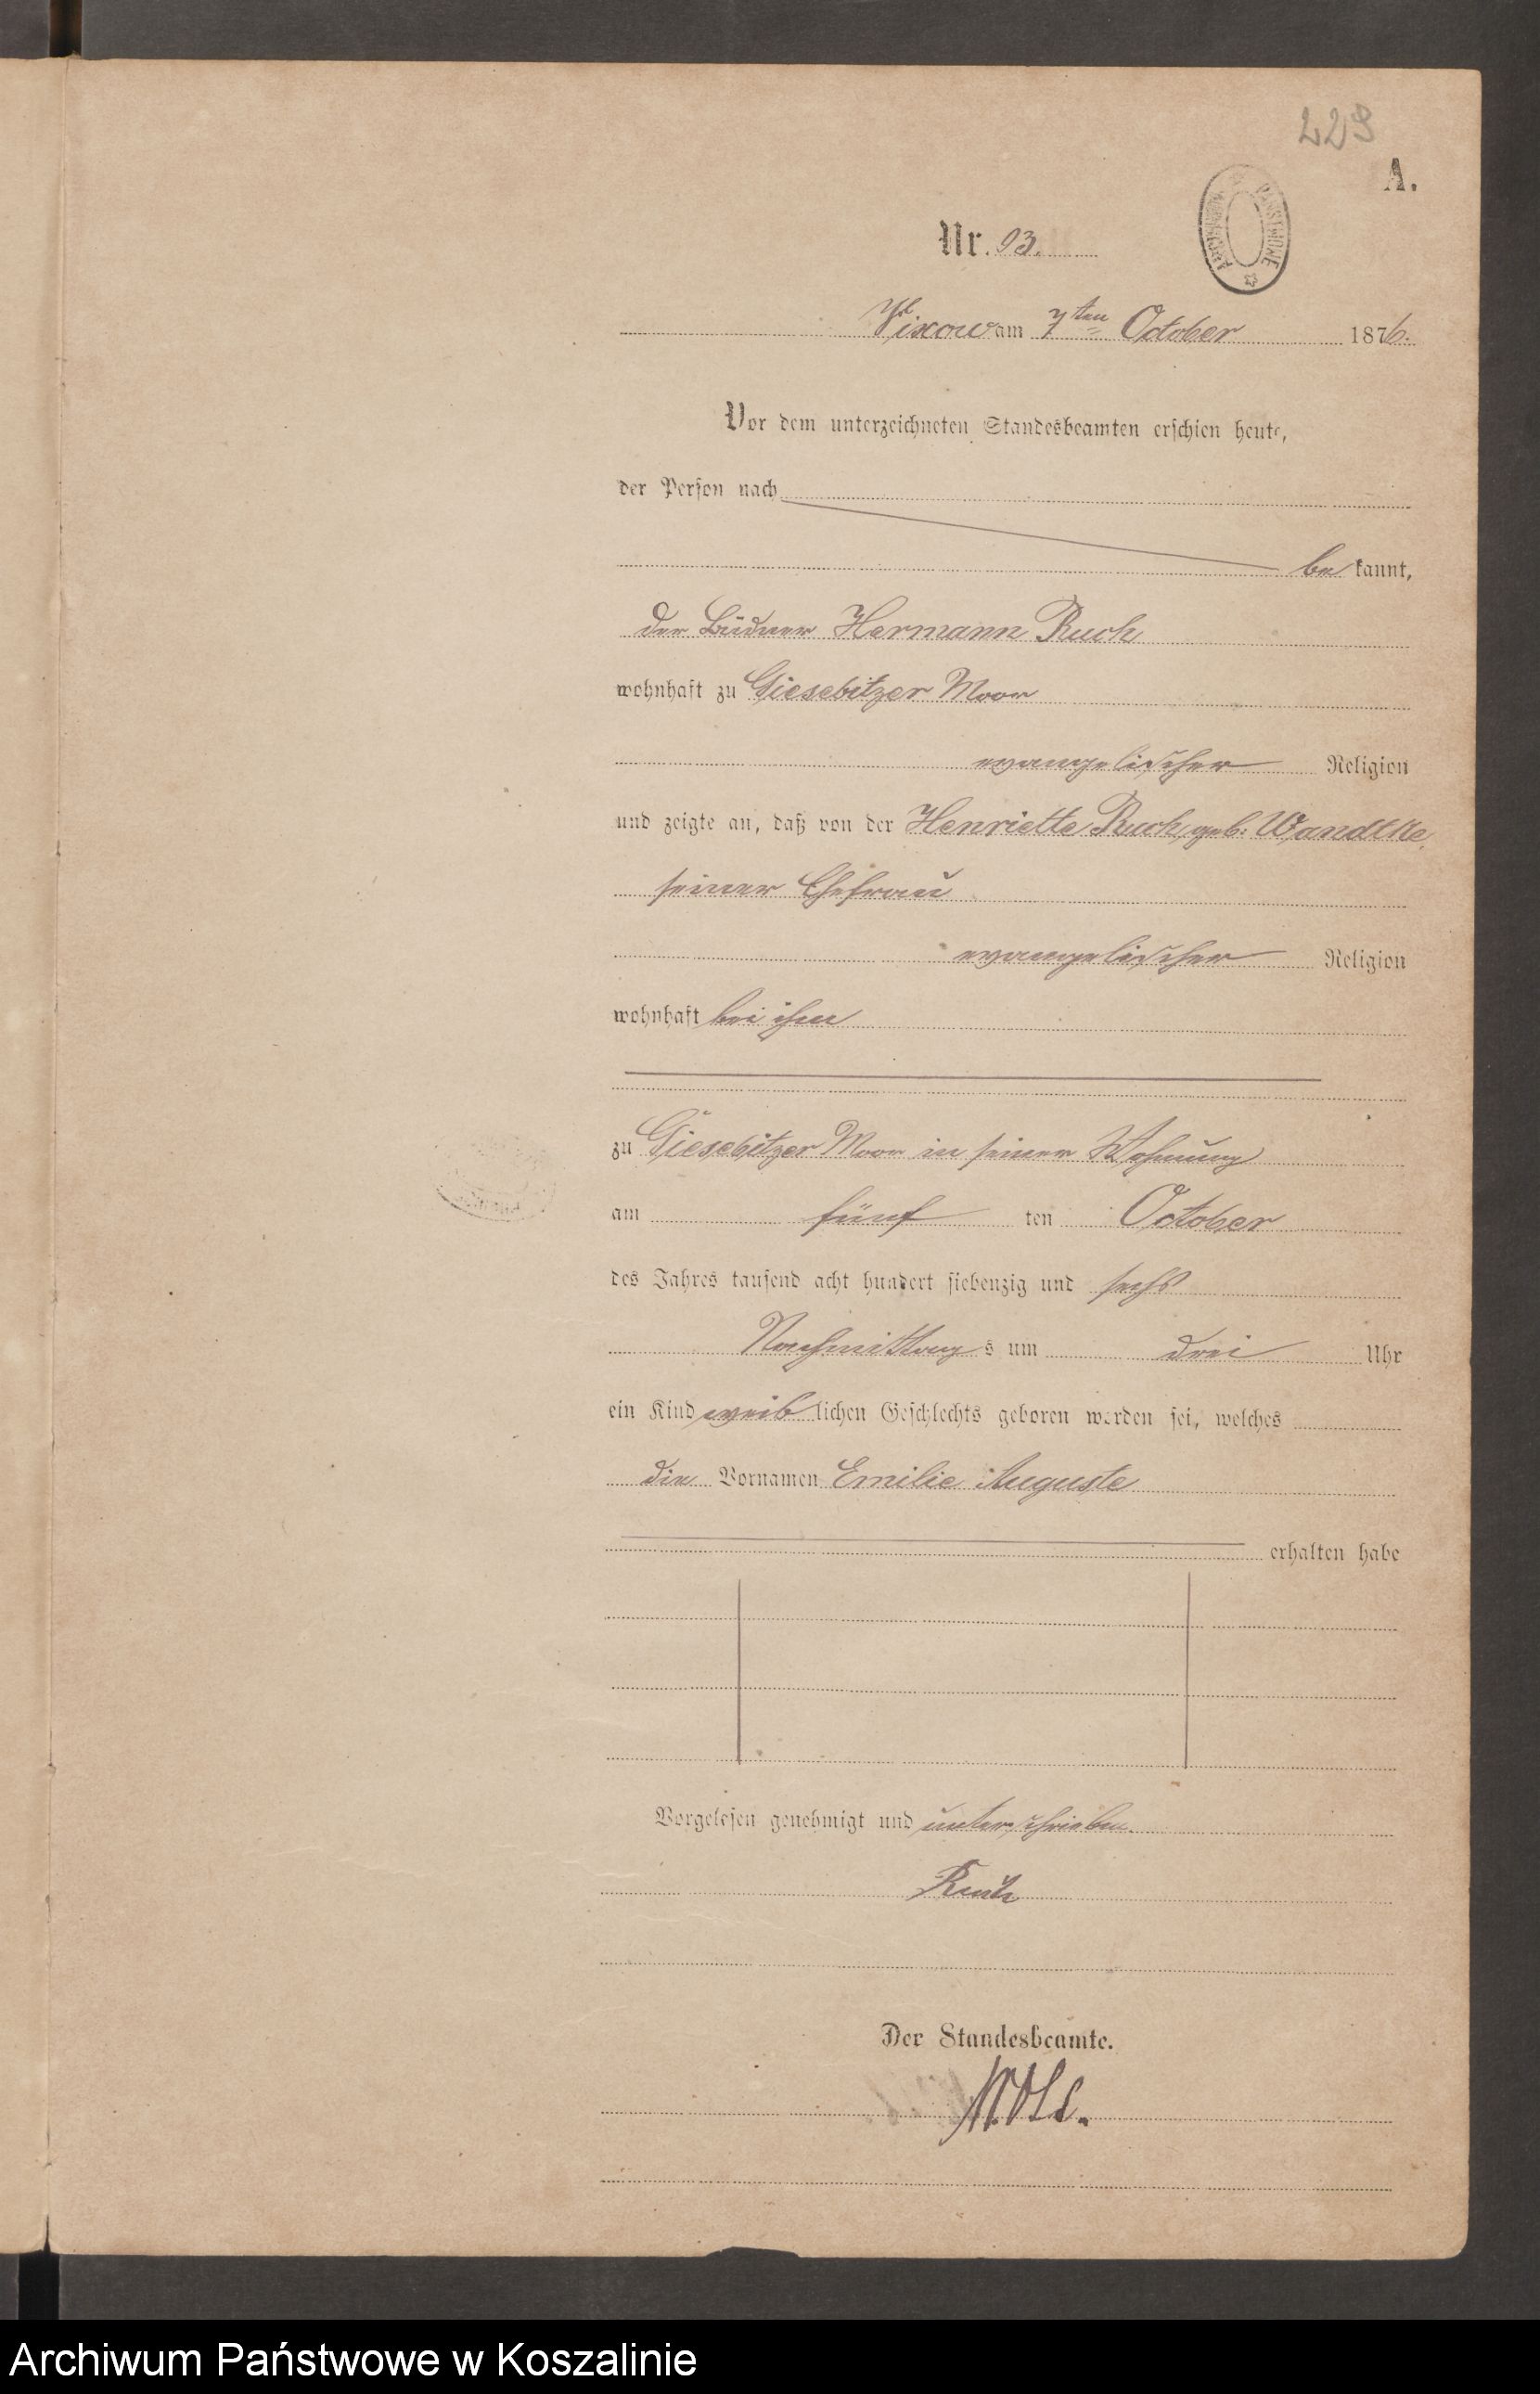 223
A.
ARCHIWUM PAŃSTWOWE
Nr. 93.
Vixow am 7ten October 1876.
Vor dem unterzeichneten Standesbeamten erschien heute,
der Person nach
be kannt,
der Büdner Hermann Ruch
wohnhaft zu Giesebitzer Moor
evangelischer Religion
und zeigte an, daß von der Henriette Ruch, geb: Wandtke,
seiner Ehefrau
evangelischer Religion
wohnhaft bei ihm
zu Giesebitzer Moor in seiner Wohnung
am fünf ten October
des Jahres tausend acht hundert siebenzig und sechs
Nachmittag s um drei Uhr
ein Kind weib lichen Geschlechts geboren worden sei, welches
die Vornamen Emilie Auguste
erhalten habe
Vorgelesen genehmigt und unterschrieben.
Ruch
Der Standesbeamte.
Archiwum Państwowe w Koszalinie